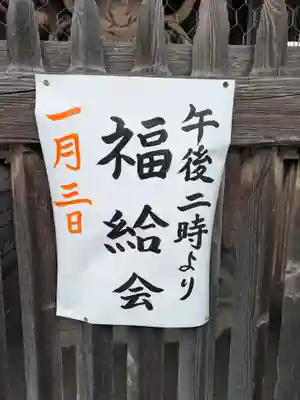 午後二時より
福給会
一月三日